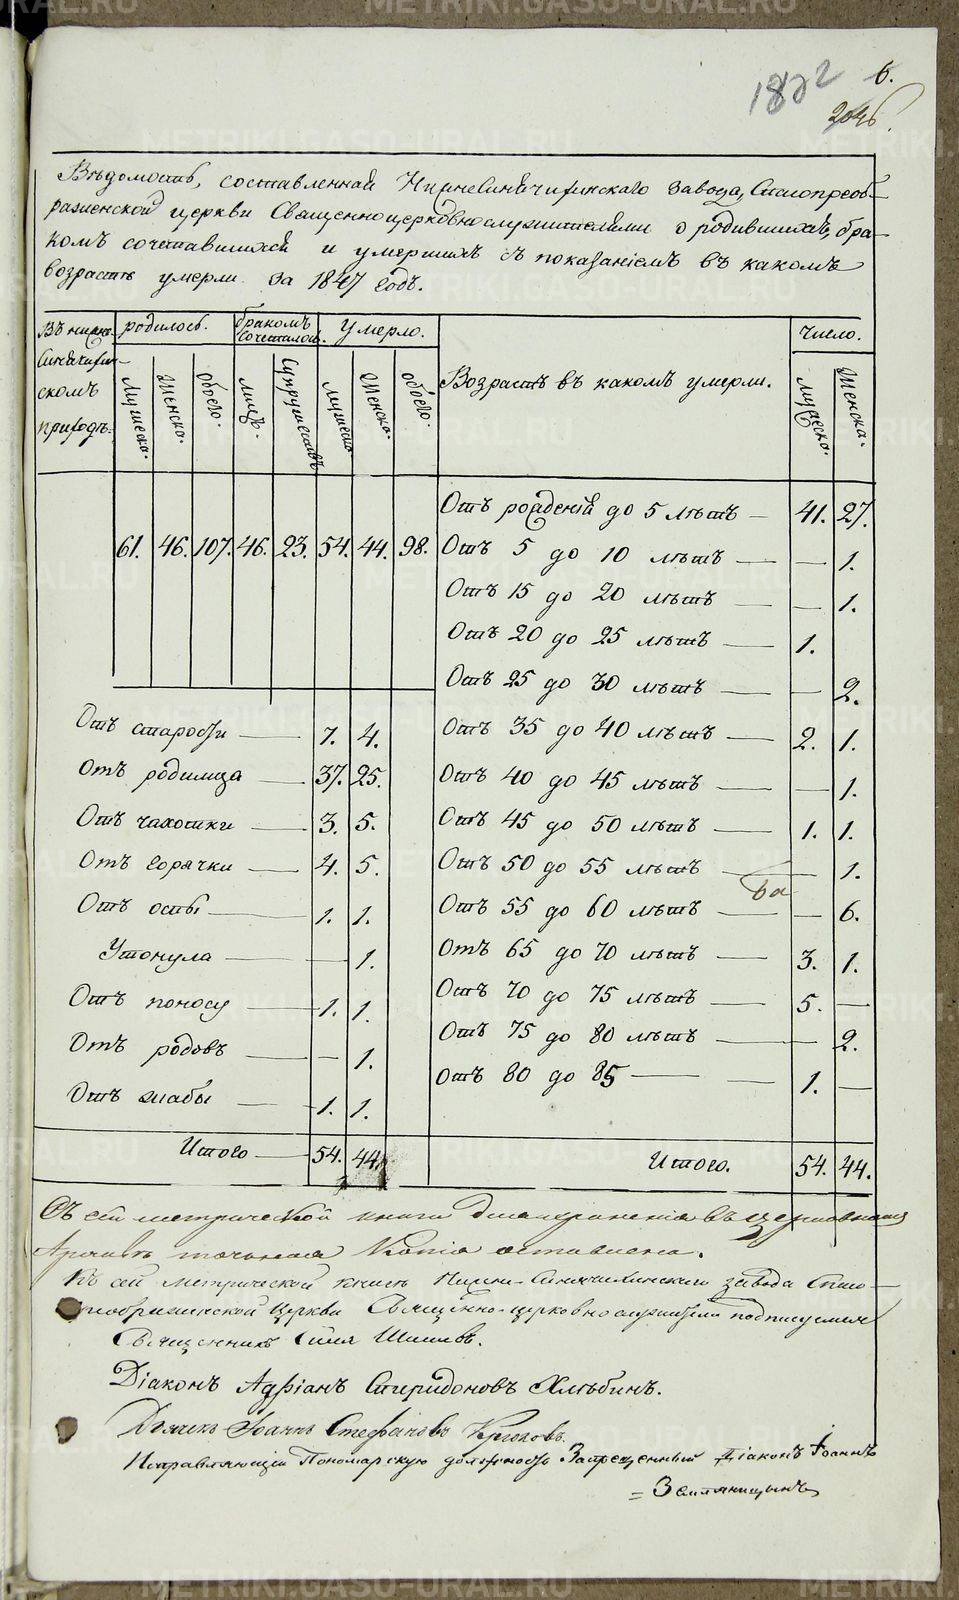 1822 6.
204 б.
Вѣдомость, составленная Нижнесинячихинскаго завода, Спасопреоб-
раженской церкви Священноцерковнослужителями о родившихся, бра-
комъ сочетавшихся и умершихъ съ показаніемъ въ какомъ
возрастѣ умерли за 1847 годъ.
Въ нижне- родилось. бракомъ сочеталось. умерло. Возрастъ въ какомъ умерли. Число.
Синячихин-
скомъ
приходѣ.
Мужеска. Женска. Обоего. Лицъ. Супружествъ Мужеска Женска. Обоего. Мужеска. Женска.
61. 46. 107. 46. 23. 54. 44. 98.
Отъ рожденія до 5 лѣтъ — 41. 27.
Отъ 5 до 10 лѣтъ — — 1.
Отъ 15 до 20 лѣтъ — — 1.
Отъ 20 до 25 лѣтъ — 1.
Отъ 25 до 30 лѣтъ — — 2.
Отъ 35 до 40 лѣтъ — 2. 1.
Отъ 40 до 45 лѣтъ — — 1.
Отъ 45 до 50 лѣтъ — 1. 1.
Отъ 50 до 55 лѣтъ — — 1.
Отъ 55 до 60 лѣтъ — — 6.
Отъ 65 до 70 лѣтъ — 3. 1.
Отъ 70 до 75 лѣтъ — 5. —
Отъ 75 до 80 лѣтъ — — 2.
Отъ 80 до 85 — — 1. —
Итого. 54. 44.
Отъ старости — 7. 4.
Отъ родимца — 37. 25.
Отъ чахотки — 3. 5.
Отъ горячки — 4. 5.
Отъ оспы — 1. 1.
Утонула — — 1.
Отъ поносу — 1. 1.
Отъ родовъ — — 1.
Отъ жабы — 1. 1.
Итого — 54. 44.
Съ сей метрической книги для храненія въ церковномъ
Архивѣ точная Копія оставлена.
Къ сей метрической книгѣ Нижне-Синячихинскаго завода Спасо-
преображенской Церкви Священно-церковнослужители подписуемся
Священникъ Илія Шишевъ.
Діаконъ Адріанъ Спиридоновъ Хлѣбинъ.
Дьячекъ Іоаннъ Стефановъ
Исправляющій Пономарскую должность Запрещенный Діаконъ Іоаннъ
= Земляницынъ
METRIKI.GASO-URAL.RU